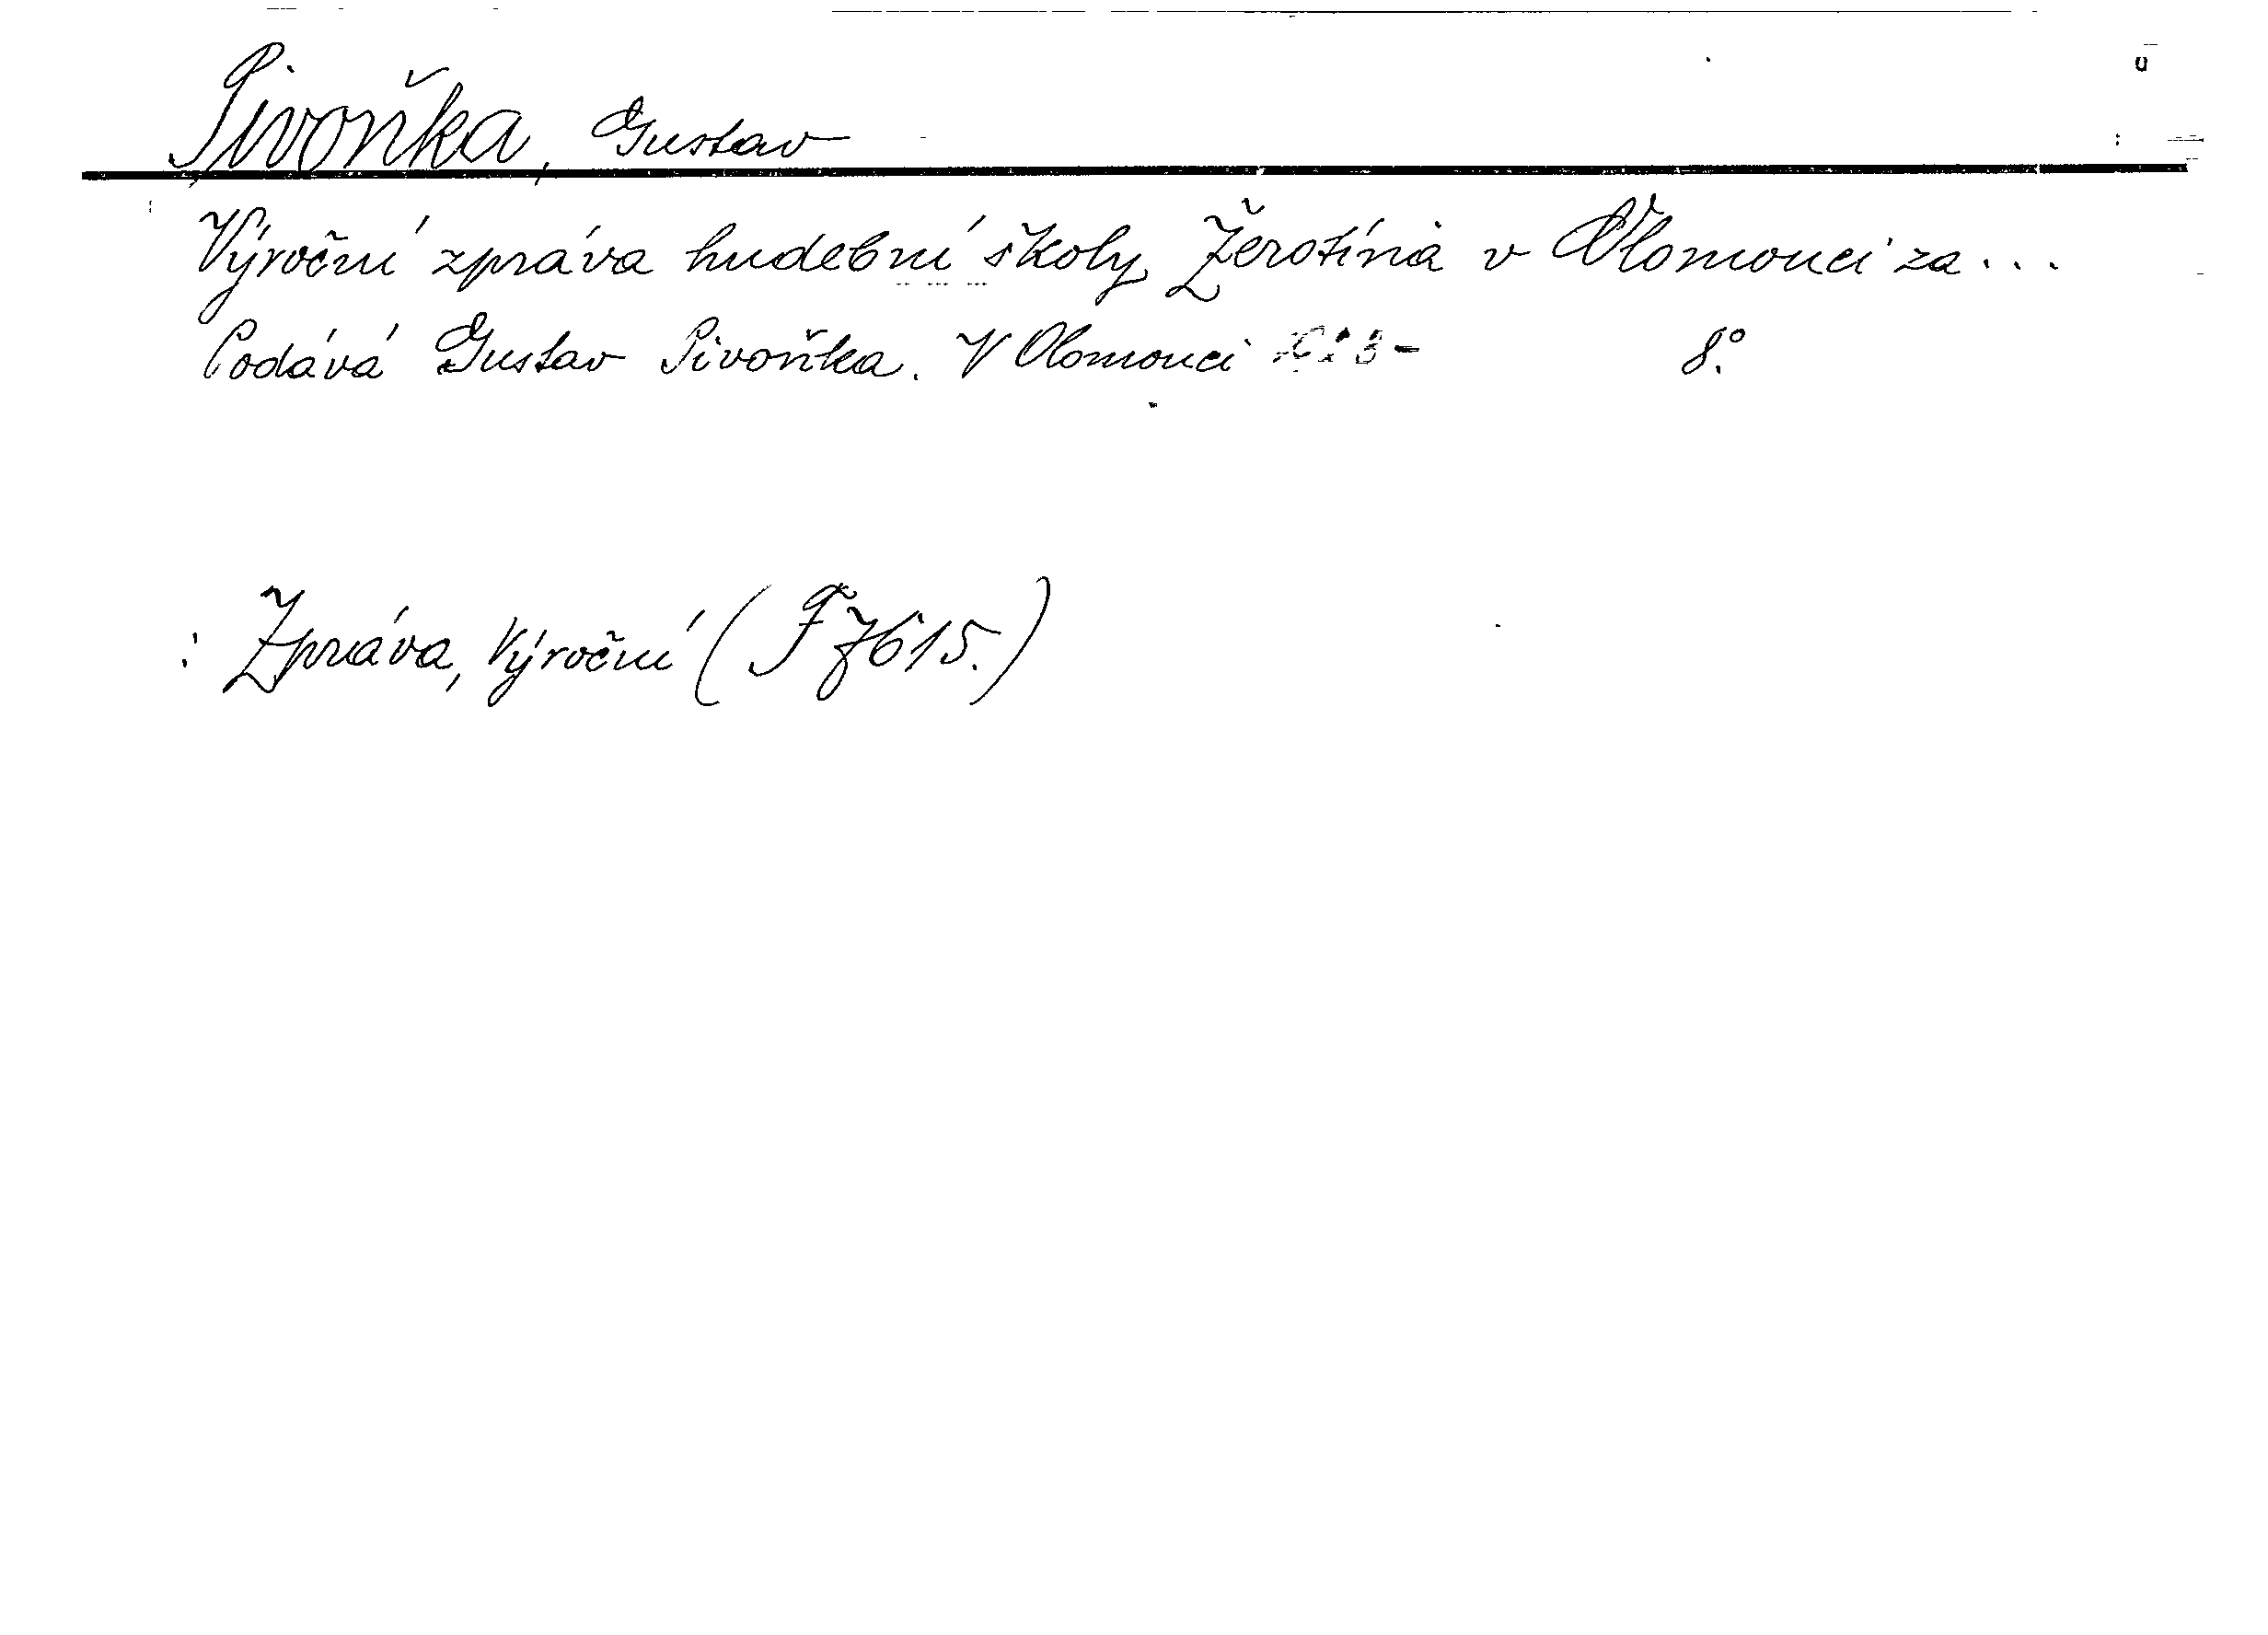 Pivoňka, Gustav
Výroční zpráva hudební školy Žerotína v Olomouci za...
Podává Gustav Pivoňka. V Olomouci 8°.
: Zpráva, Výroční (F 7615.)